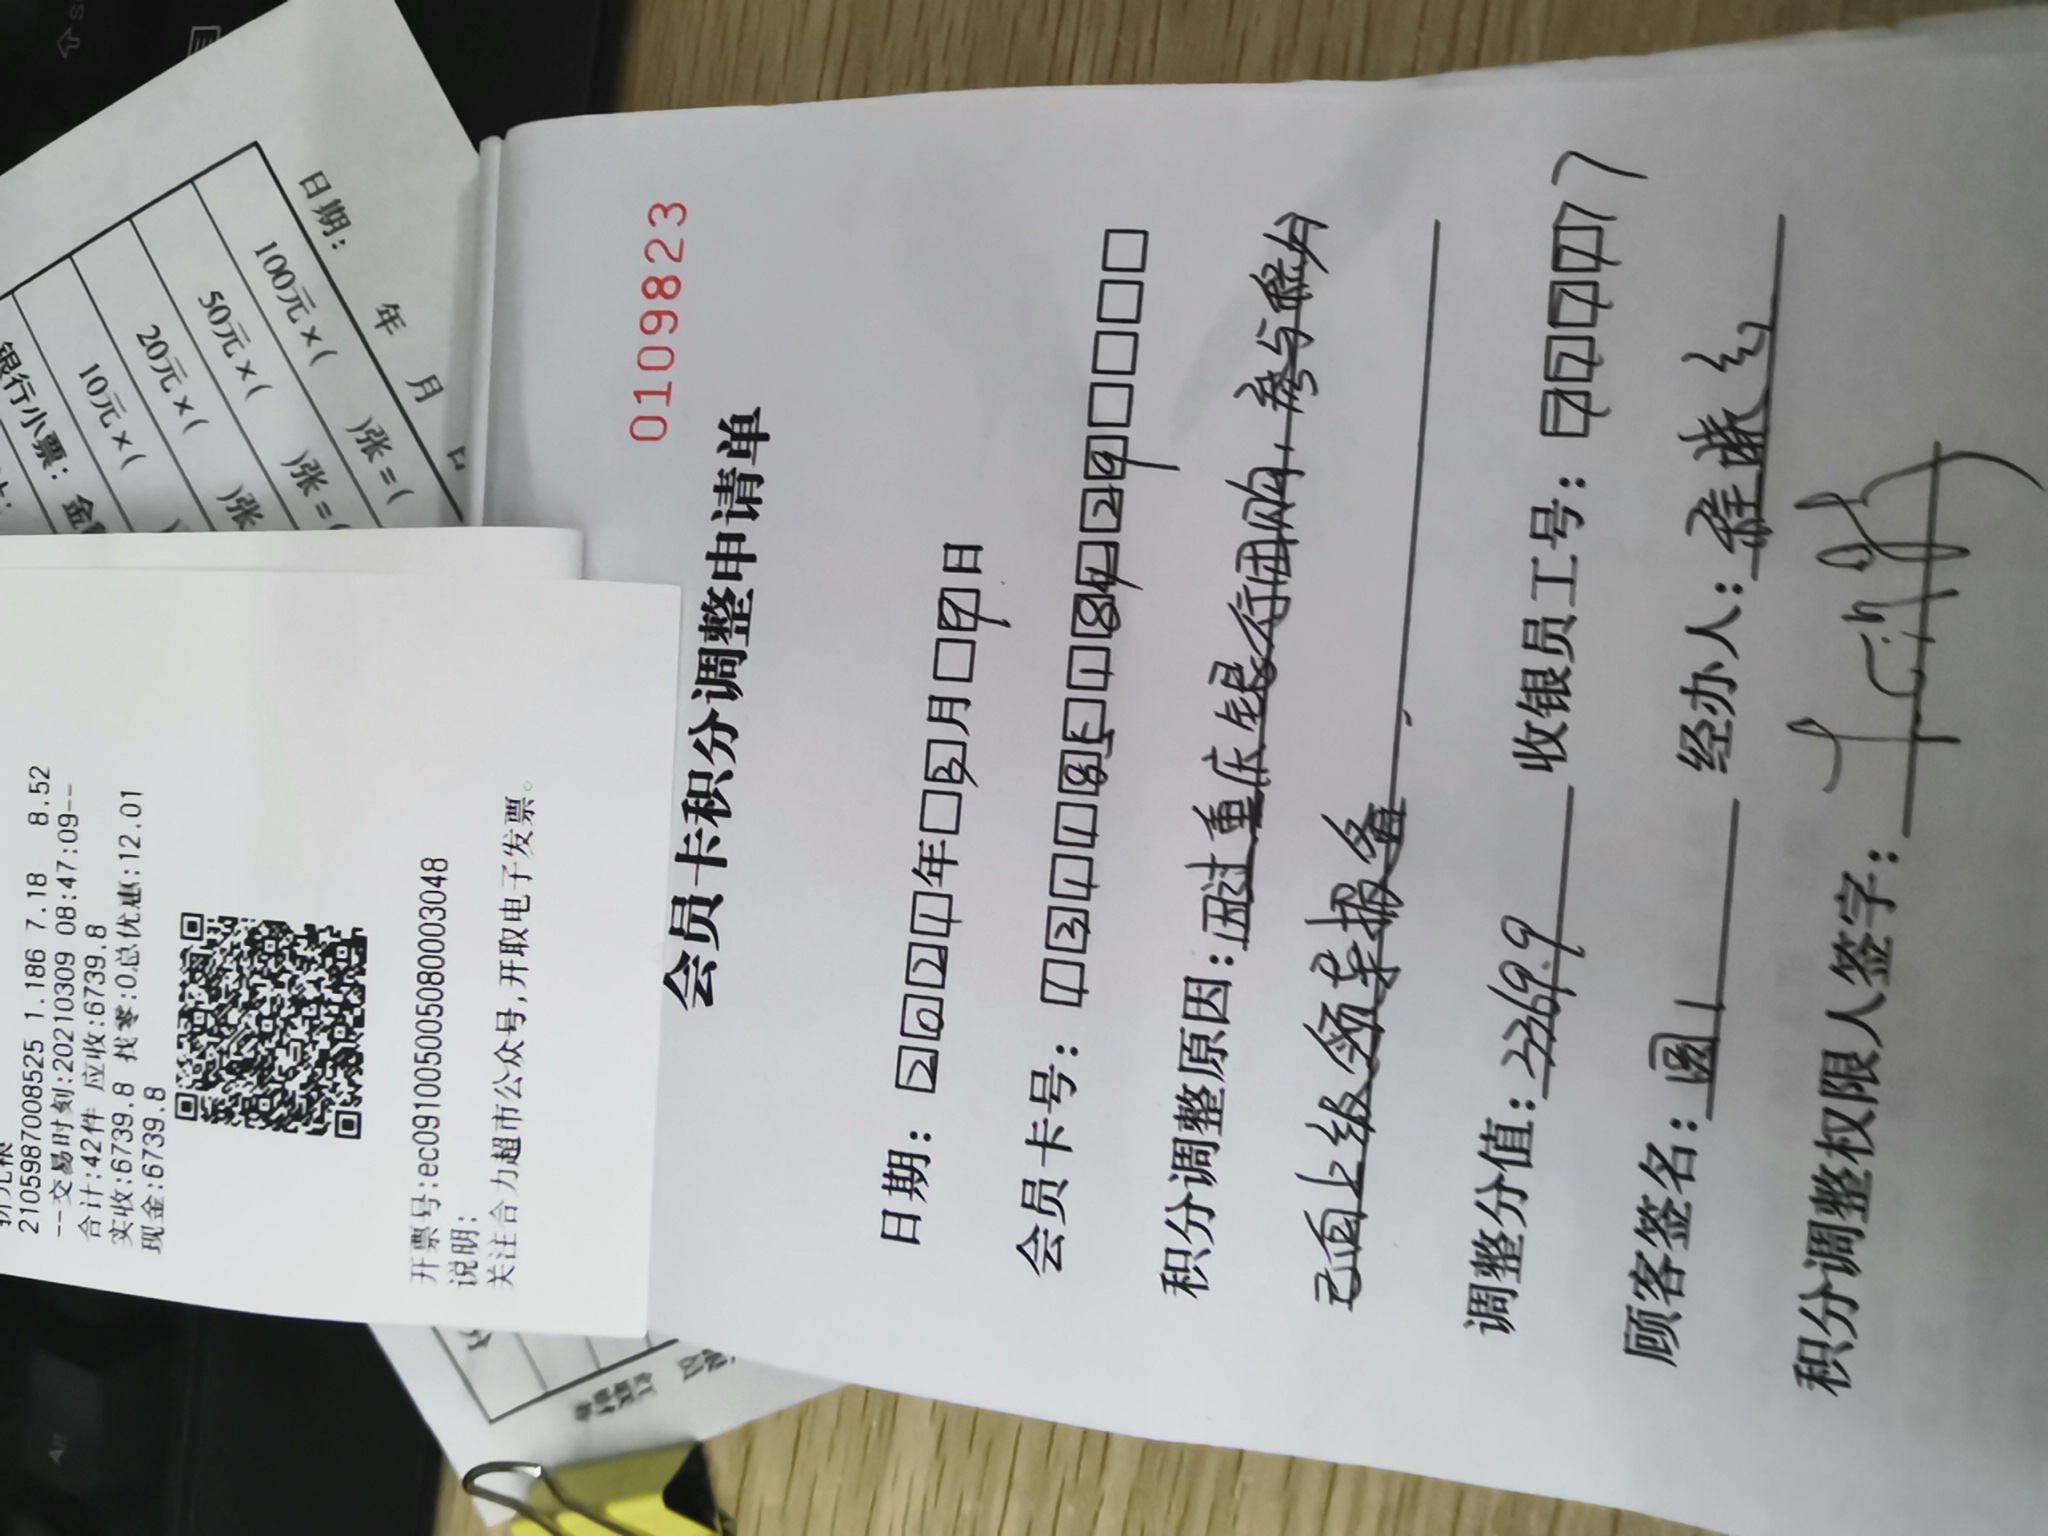 2105987008525 1.186 7.18 8.52
--交易时刻:20210309 08:47:09--
合计:42件 应收:6739.8
实收:6739.8 找零:0总优惠:12.01
现金:6739.8
开票号:ec09100500508000003048
说明:
关注合力超市公众号,开取电子发票。
日期: 年 月
100元×( )张=(
50元×( )张=(
20元×( )张
10元×(
银行小票: 金
0109823
会员卡积分调整申请单
日期: 2021年3月9日
会员卡号: 13118518429
积分调整原因:因过重庆银行团购,参与积分
已向上级领导报备
调整分值: 2269.9 收银员工号: 77777
顾客签名: 圆 经办人:
积分调整权限人签字: